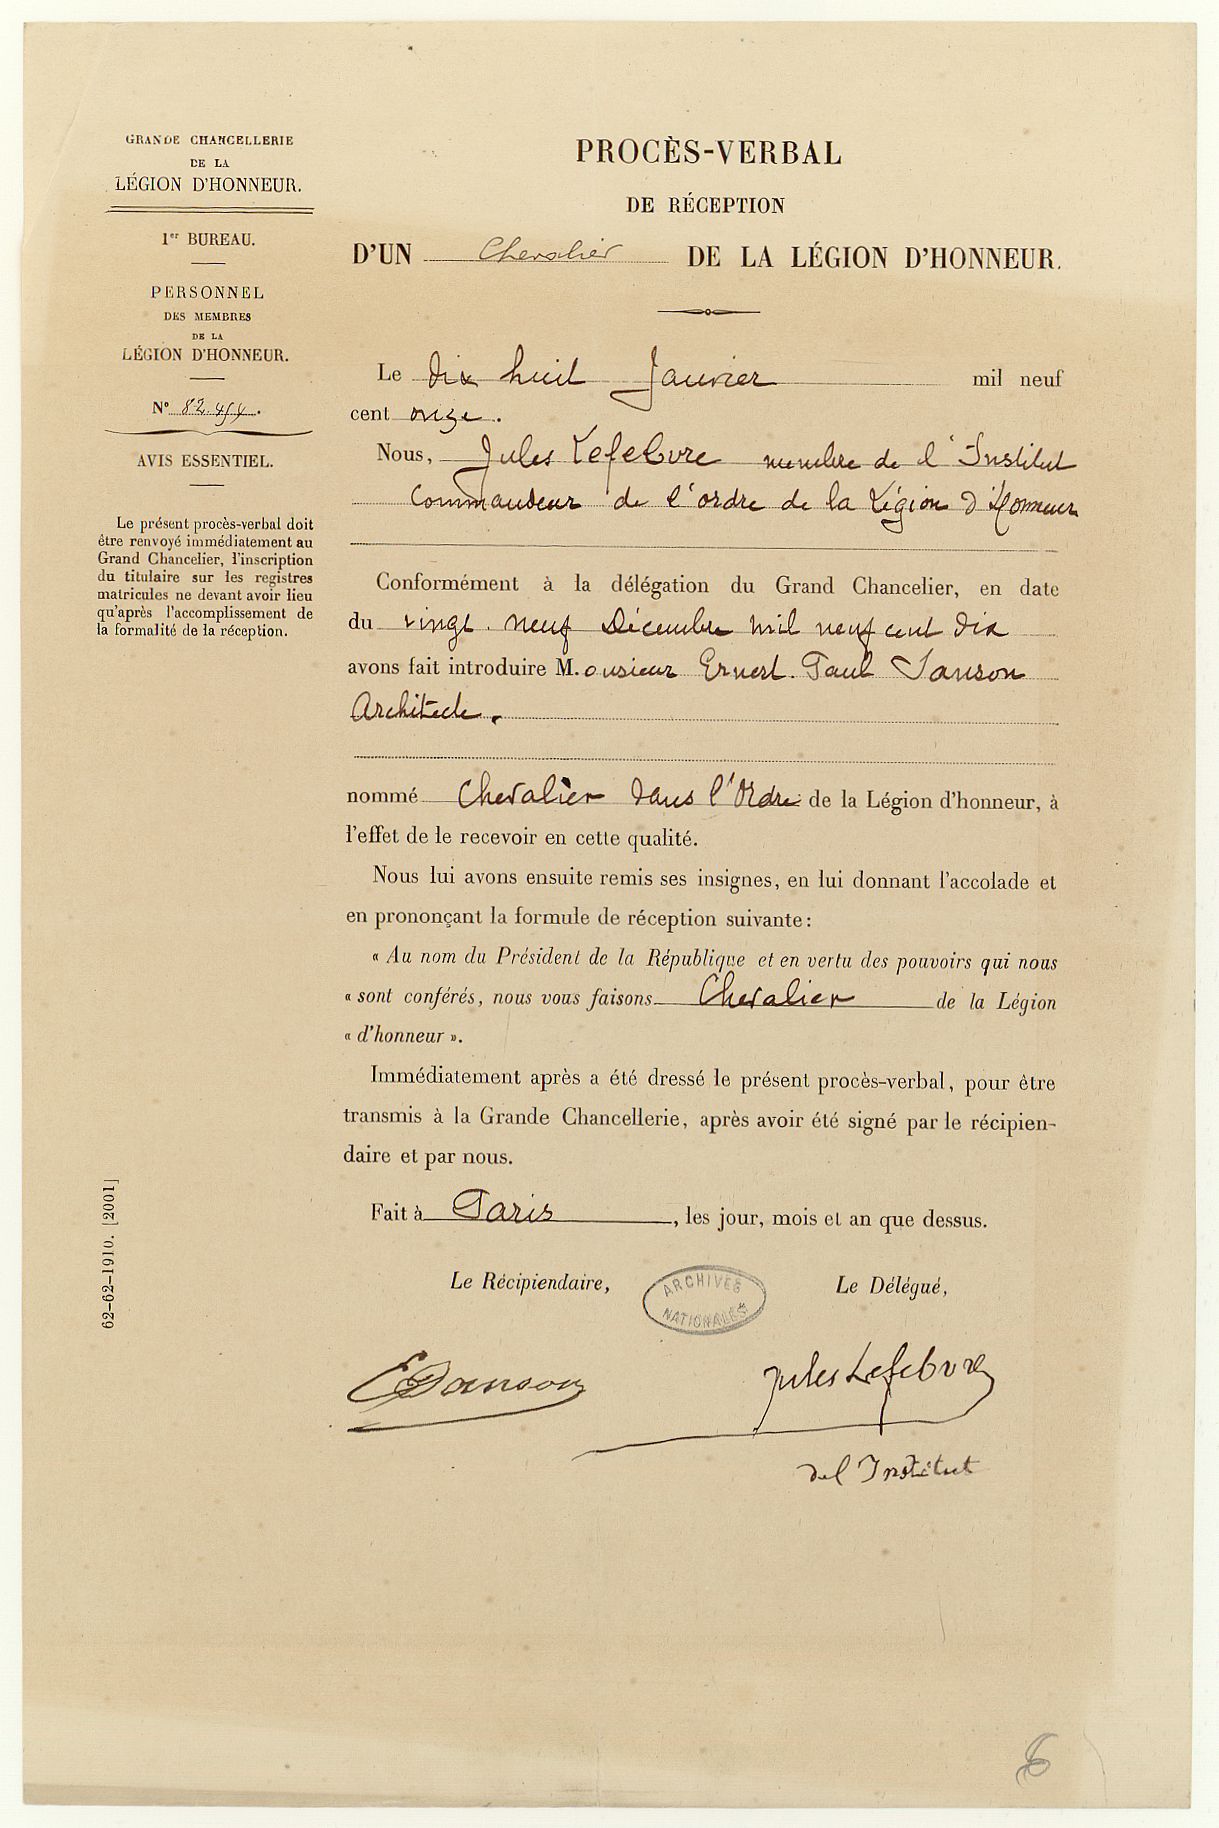 GRANDE CHANCELLERIE
DE LA
LÉGION D'HONNEUR.
1er BUREAU.
PERSONNEL
DES MEMBRES
DE LA
LÉGION D'HONNEUR.
N° 82.454.
AVIS ESSENTIEL.
Le présent procès-verbal doit
être renvoyé immédiatement au
Grand Chancelier, l'inscription
du titulaire sur les registres
matricules ne devant avoir lieu
qu'après l'accomplissement de
la formalité de la réception.
62-62-1910. [2001]
PROCÈS-VERBAL
DE RÉCEPTION
D'UN Chevalier DE LA LÉGION D'HONNEUR.
Le dix huit Janvier mil neuf
cent onze.
Nous, Jules Lefebvre membre de l'Institut
Commandeur de l'ordre de la Légion d'Honneur
Conformément à la délégation du Grand Chancelier, en date
du vingt neuf Décembre mil neuf cent dix
avons fait introduire M.onsieur Ernest Paul Sanson
Architecte.
nommé Chevalier dans l'Ordre de la Légion d'honneur, à
l'effet de le recevoir en cette qualité.
Nous lui avons ensuite remis ses insignes, en lui donnant l'accolade et
en prononçant la formule de réception suivante:
« Au nom du Président de la République et en vertu des pouvoirs qui nous
« sont conférés, nous vous faisons Chevalier de la Légion
« d'honneur ».
Immédiatement après a été dressé le présent procès-verbal, pour être
transmis à la Grande Chancellerie, après avoir été signé par le récipien-
daire et par nous.
Fait à Paris, les jour, mois et an que dessus.
Le Récipiendaire,
Le Délégué,
ARCHIVES
NATIONALES
E Sanson
Jules Lefebvre
de l'Institut
6